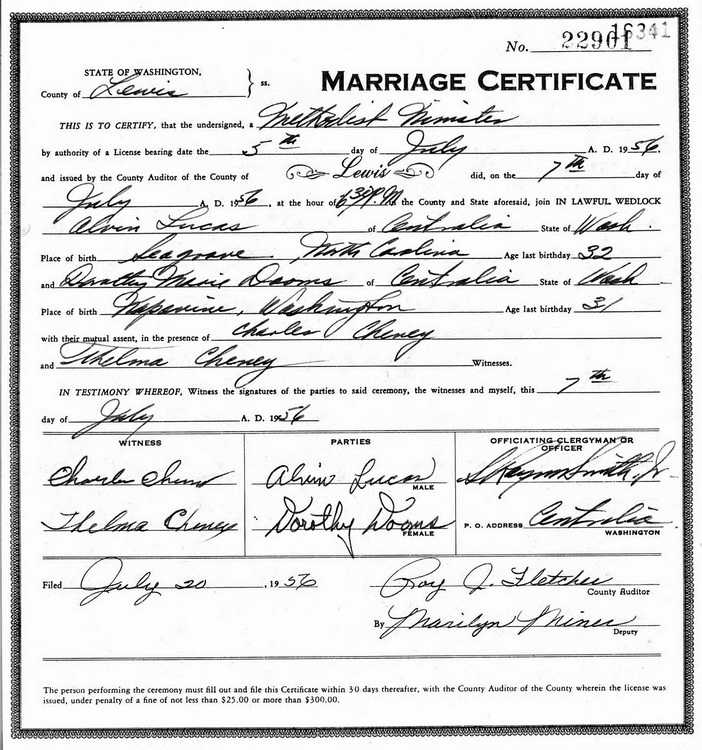 16341
No. 22901
STATE OF WASHINGTON,
County of Lewis } ss.
MARRIAGE CERTIFICATE
THIS IS TO CERTIFY, that the undersigned, a Methodist Minister
by authority of a License bearing date the 5th day of July A. D. 1956,
and issued by the County Auditor of the County of Lewis did, on the 7th day of
July A. D. 1956, at the hour of 6:30 P.M. in the County and State aforesaid, join IN LAWFUL WEDLOCK
Alvin Lucas of Centralia State of Wash.
Place of birth Seagrave, North Carolina Age last birthday 32
and Dorothy Marie Dooms of Centralia State of Wash
Place of birth Napavine, Washington Age last birthday 31
with their mutual assent, in the presence of Charles Cheney
and Thelma Cheney Witnesses.
IN TESTIMONY WHEREOF, Witness the signatures of the parties to said ceremony, the witnesses and myself, this 7th
day of July A. D. 1956
WITNESS PARTIES OFFICIATING CLERGYMAN OR OFFICER
Charles Alvin Lucas Smith, Jr
MALE
Thelma Cheney Dorothy Dooms P. O. ADDRESS Centralia
FEMALE WASHINGTON
Filed July 20, 1956 Roy J. Fletcher
County Auditor
By Marilyn Miner
Deputy
The person performing the ceremony must fill out and file this Certificate within 30 days thereafter, with the County Auditor of the County wherein the license was
issued, under penalty of a fine of not less than $25.00 or more than $300.00.